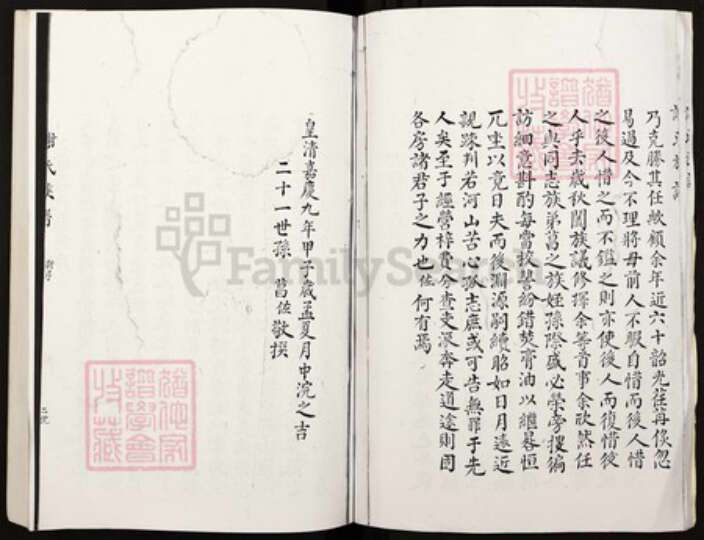 乃克勝其任歟顧余年近六十韶光荏苒倐忽
易過及今不理將毋前人不暇自惜而後人惜
之後人惜之而不鑑之則亦使後人而復惜後
人乎去歲秋闔族議修擇余等首事余歡然任
之與同志族弟菖之族姪孫際盛必榮旁搜徧
訪細意斟酌每當校讐紛錯焚膏油以繼晷恒
兀坐以竟日夫而後淵源嗣續昭如日月遠近
親踈判若河山苦心孤志庶或可告無罪于先
人矣至于經營梓費分查支派奔走道途則固
各房諸君子之力也佐何有焉
皇清嘉慶九年甲子歲孟夏月中浣之吉
二十一世孫 菖佐敬撰
謝氏族譜
FamilySearch